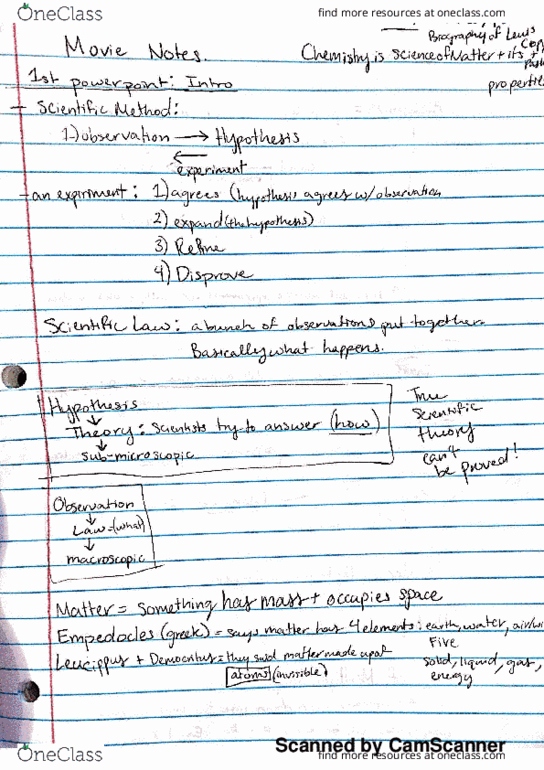 OneClass
find more resources at oneclass.com
Biography of Lewis
Movie Notes.
Chemistry is science of Matter + its
properti
1st powerpoint: Intro
- Scientific Method:
1.) observation → Hypothesis
←
experiment
- an expriment: 1) agrees (hypothesis agrees w/ observation
2) expand (the hypothesis)
3) Refine
4) Disprove
Scientific Law: a bunch of observations put together.
Basically what happens.
Hypothesis
↓
Theory: Scientists try to answer (how)
↓
sub-microscopic
True
Scientific
theory
can't
be proved!
Observation
↓
Law=(what)
↓
macroscopic
Matter = something has mass + occupies space
Empedocles (greek) = says matter has 4 elements: earth, water, air/wi
Fire
Leucippus + Democritus = they said matter made up of
solid, liquid, gas,
atoms (invisible)
energy
Scanned by CamScanner
OneClass
find more resources at oneclass.com